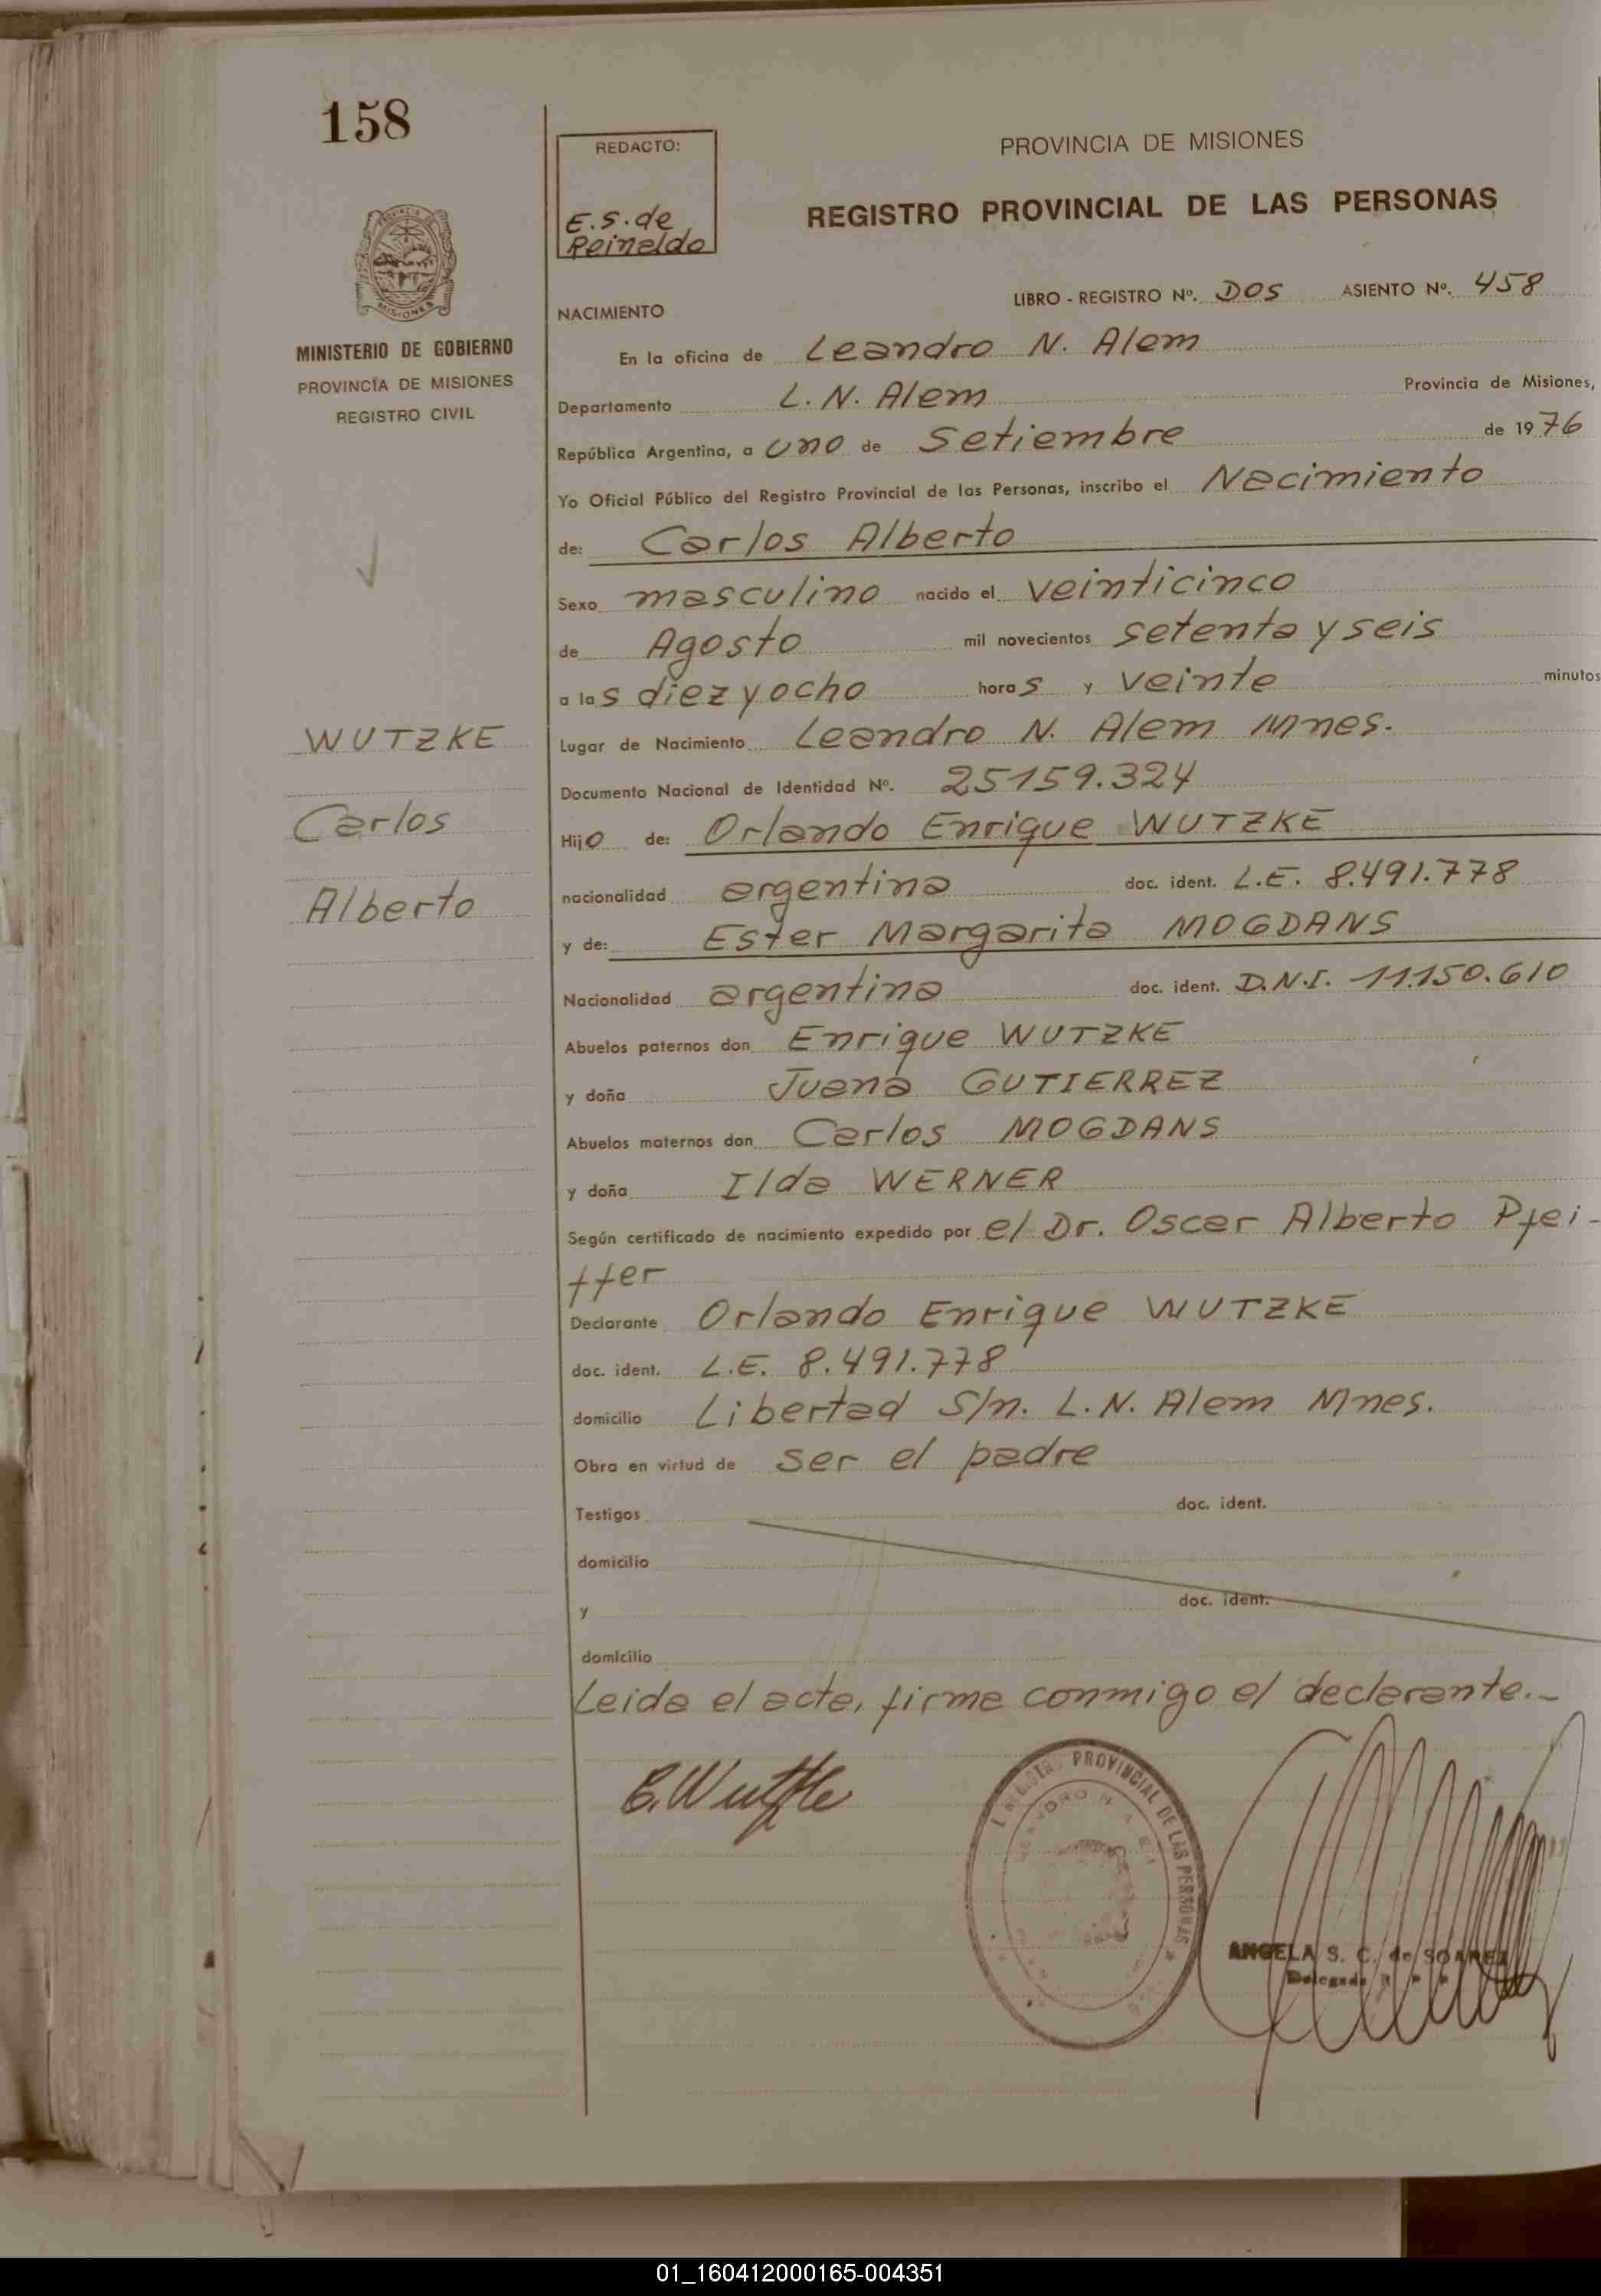 158
REDACTO:
E.S. de
Reinaldo
PROVINCIA DE MISIONES
REGISTRO PROVINCIAL DE LAS PERSONAS
MISIONES
MINISTERIO DE GOBIERNO
PROVINCIA DE MISIONES
REGISTRO CIVIL
LIBRO - REGISTRO Nº. DOS ASIENTO Nº. 458
NACIMIENTO
En la oficina de Leandro N. Alem
Departamento L. N. Alem Provincia de Misiones,
República Argentina, a uno de Setiembre de 1976
Yo Oficial Público del Registro Provincial de las Personas, inscribo el Nacimiento
de: Carlos Alberto
Sexo masculino nacido el veinticinco
de Agosto mil novecientos setenta y seis
a las diez y ocho horas y veinte minutos
WUTZKE
Carlos
Alberto
Lugar de Nacimiento Leandro N. Alem Mnes.
Documento Nacional de Identidad Nº. 25159.324
Hijo de: Orlando Enrique WUTZKE
nacionalidad argentina doc. ident. L.E. 8.491.778
y de: Ester Margarita MOGDANS
Nacionalidad argentina doc. ident. D.N.I. 11.150.610
Abuelos paternos don Enrique WUTZKE
y doña Juana GUTIERREZ
Abuelos maternos don Carlos MOGDANS
y doña Ilda WERNER
Según certificado de nacimiento expedido por el Dr. Oscar Alberto Pfei-
ffer
Declarante Orlando Enrique WUTZKE
doc. ident. L.E. 8.491.778
domicilio Libertad S/n. L.N. Alem Mnes.
Obra en virtud de ser el padre
Testigos doc. ident.
domicilio
y doc. ident.
domicilio
Leida el acta, firma conmigo el declarante.-
PROVINCIAL DE LAS PERSONAS
ANGELA S. C. de SOAREZ
Delegada
01_160412000165-004351